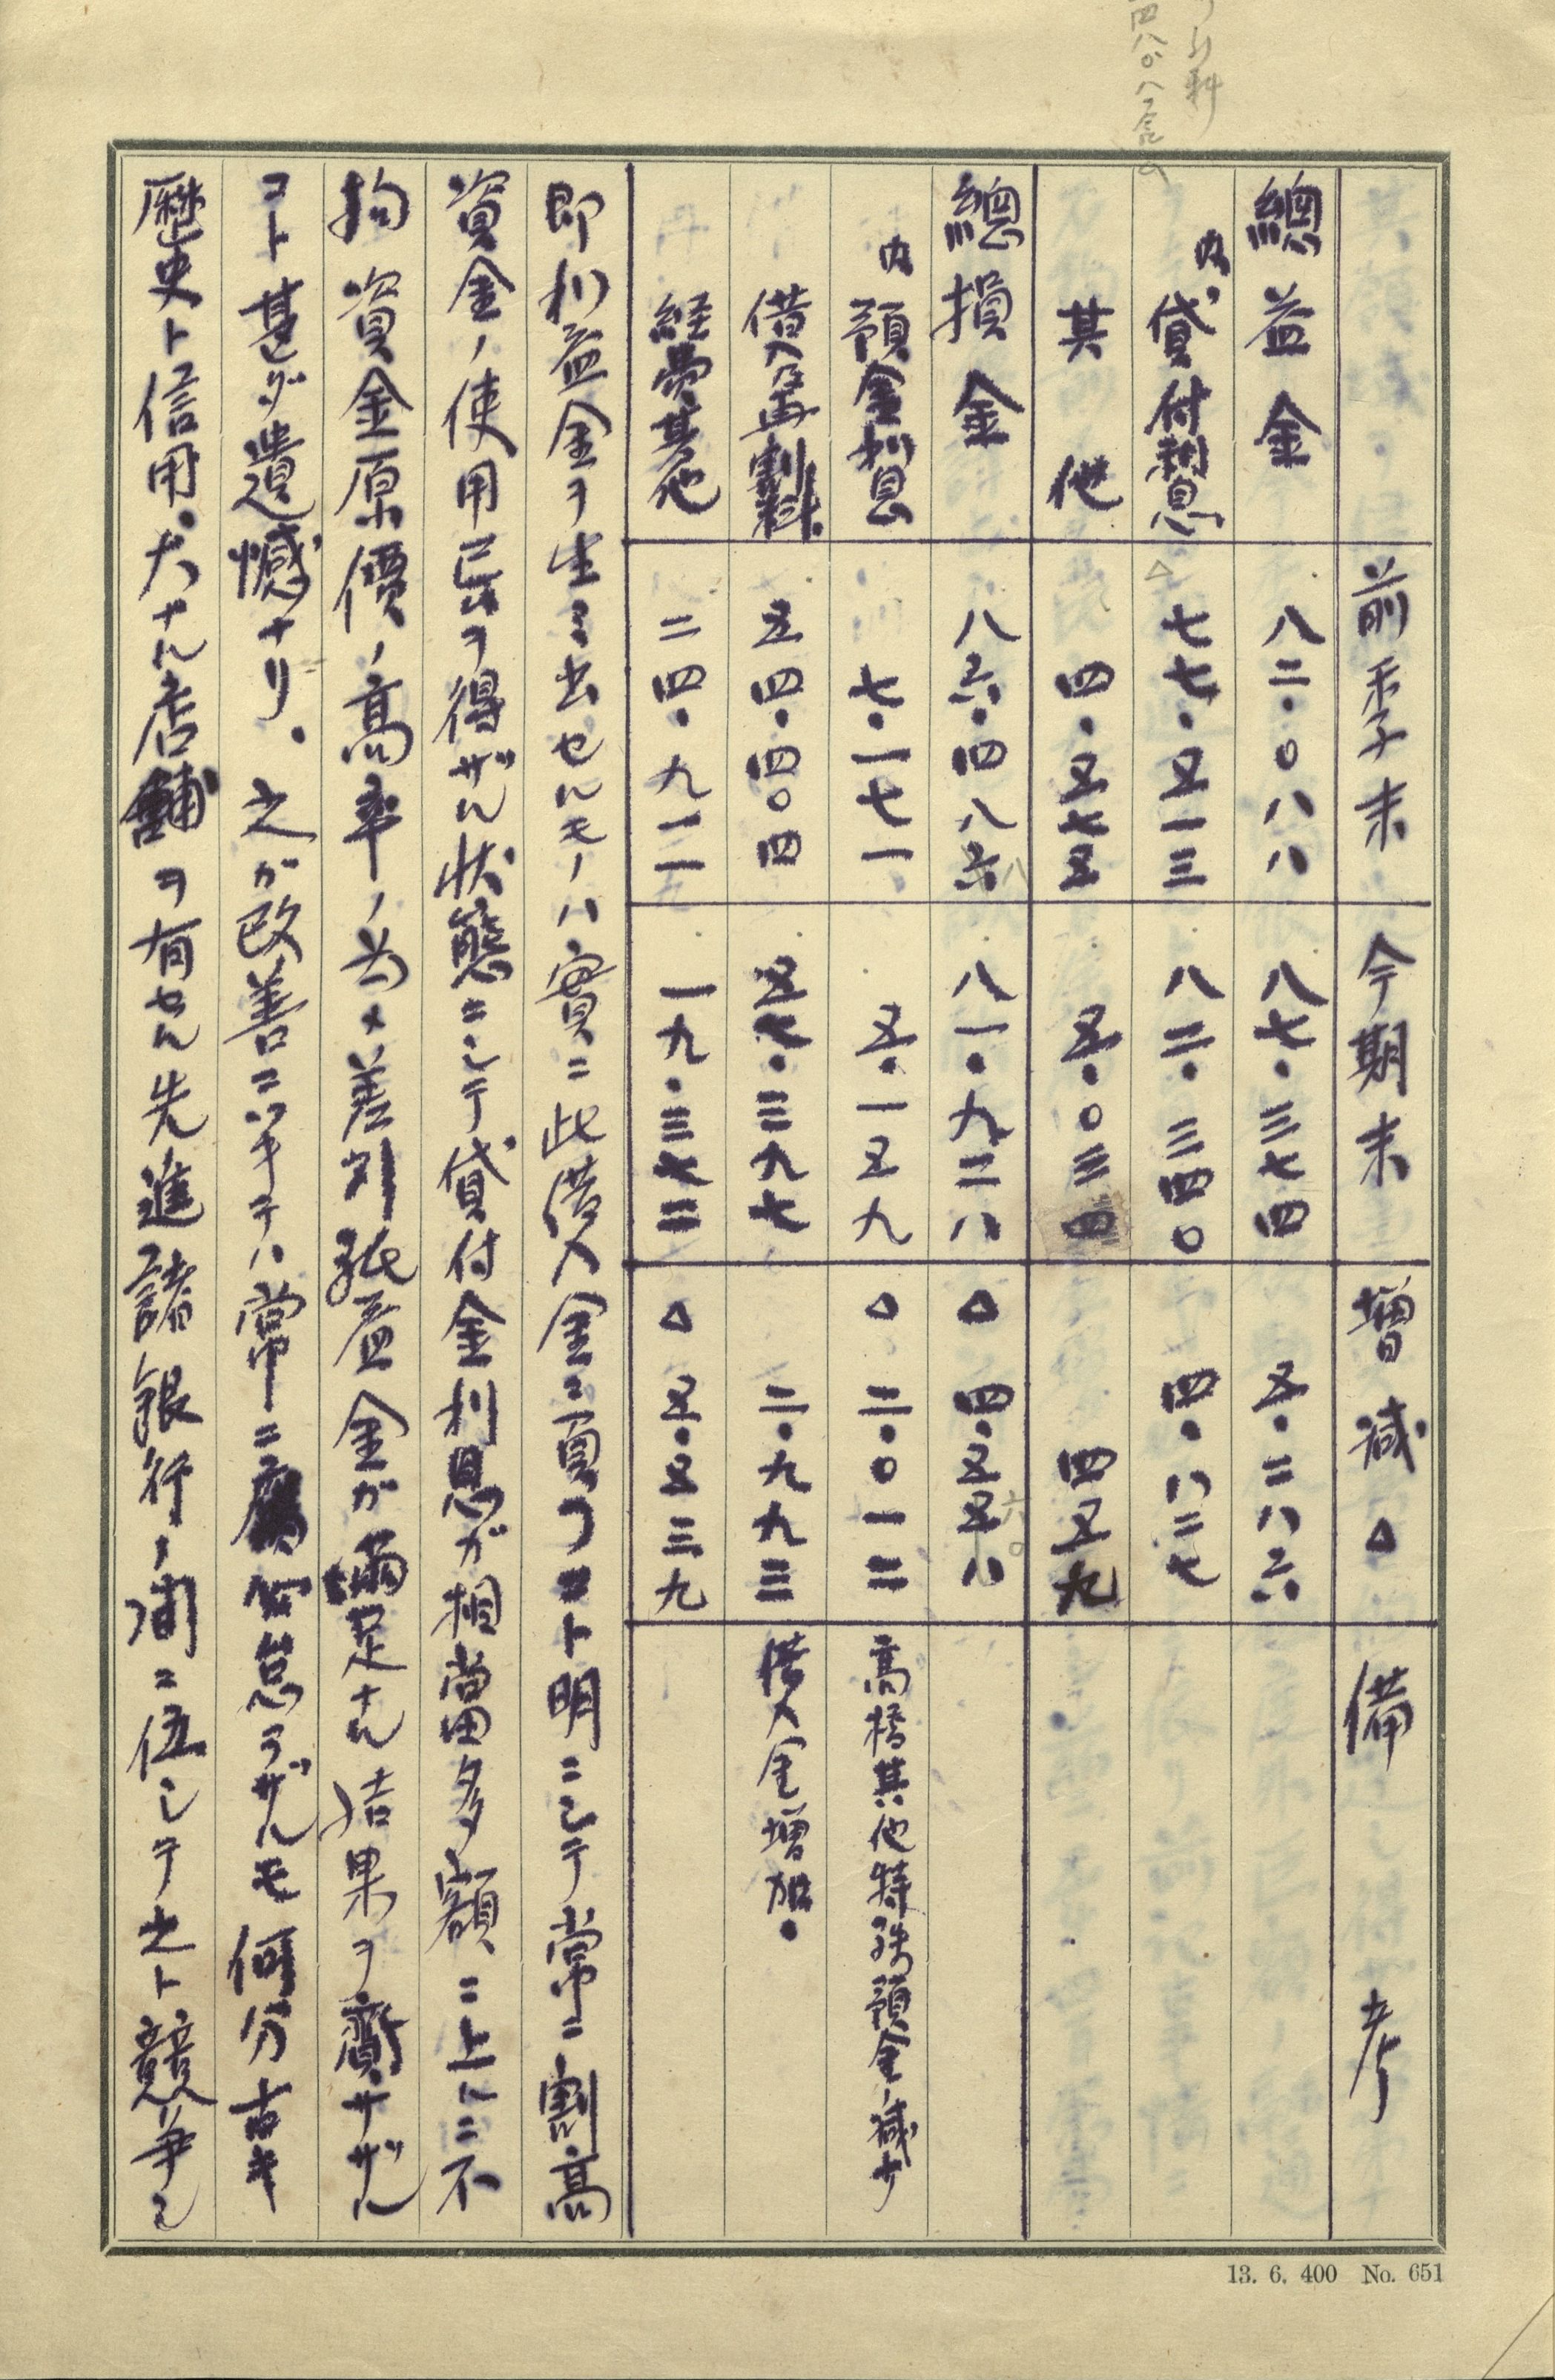 前季末 今期末 増減△ 備考
總益金 八二・〇八八 八七・三七四 五・二八六
内 貸付利息 七七・五一三 八二・三四〇 四・八二七
其他 四・五七五 五・〇三四 四五九
總損金 八六・四八六 八一・九二八 △ 四・五五八
内 預金利息 七・一七一 五・一五九 △ 二・〇一二 高橋其他特殊預金ノ減少
借入金再割料 五四・四〇四 五七・三九七 二・九九三 借入金増加・
経費其他 二四・九一一 一九・三七二 △ 五・五三九
即利益金ヲ生ミ出セルモノハ實ニ此借入金ニ負フコト明ニシテ常ニ割高
資金ノ使用已ムヲ得ザル状態ニシテ貸付金利息ガ相當多額ニ上ルニ不
拘資金原價ノ高率ノ為メ差引純益金ガ満足ナル結果ヲ齎サザル
コト甚ダ遺憾ナリ。之ガ改善ニツキテハ常ニ怠ラザルモ何分古キ
歴史ト信用、大ナル店舗ヲ有セル先進諸銀行ノ間ニ伍シテ之ト競争シ
13. 6. 400 No. 651